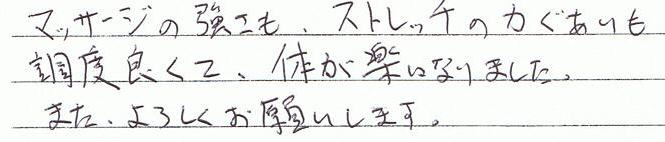 マッサージの強さも、ストレッチの力ぐあいも
調度良くて、体が楽になりました。
また、よろしくお願いします。